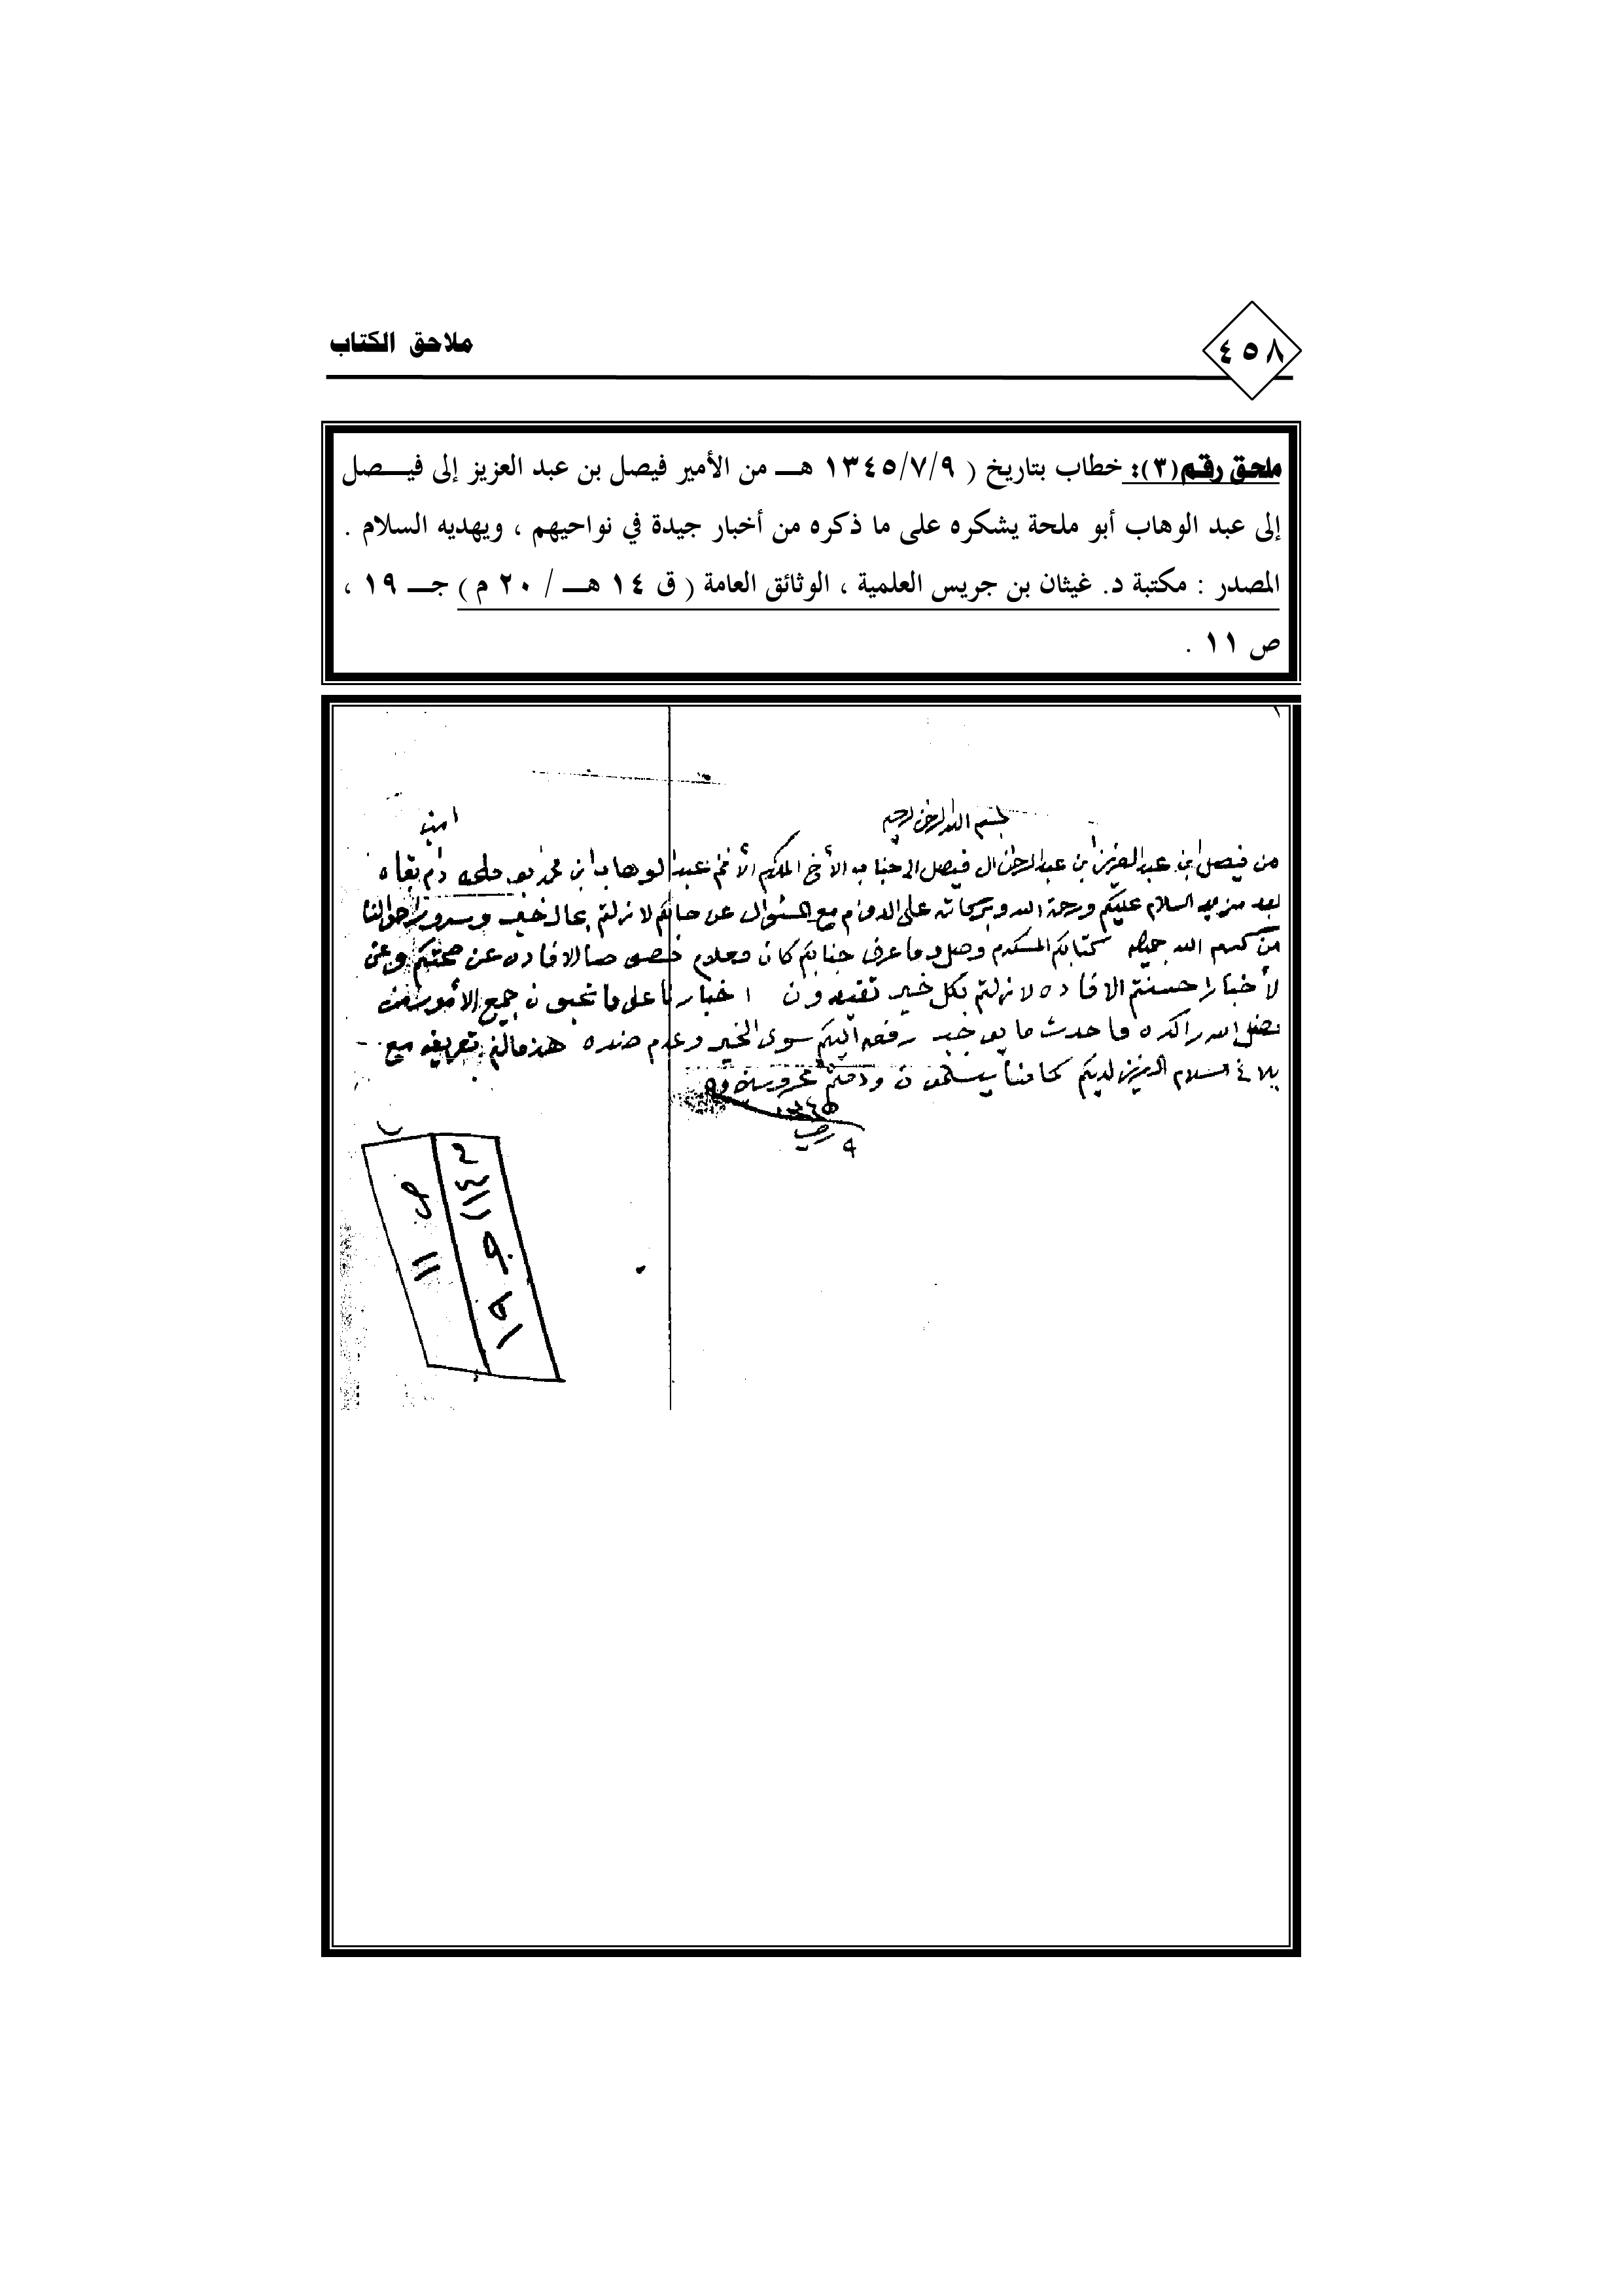 ملاحق الكتاب
٤٥٨
ملحق رقم(٣): خطاب بتاريخ ( ١٣٤٥/٧/٩ هـــ من الأمير فيصل بن عبد العزيز إلى فيــــصل
إلى عبد الوهاب أبو ملحة يشكره على ما ذكره من أخبار جيدة في نواحيهم ، ويهديه السلام .
المصدر : مكتبة د. غيثان بن جريس العلمية ، الوثائق العامة ( ق ١٤ هـــ / ٢٠ م ) جـــ ١٩ ،
ص ١١ .
بسم الله الرحمن الرحيم
امين
من فيصل ابن عبدالعزيز ابن عبدالرحمن ال فيصل الى جناب الأخ المكرم الأفخم عبدالوهاب ابن محمد بو ملحه دام بقاه
بعد مزيد السلام عليكم ورحمة الله وبركاته على الدوام مع السؤال عن حالكم لا زلتم بحال خير وسرور احوالنا
من كرم الله جميله كتابكم المكرم وصل وما عرف جنابكم كان معلوم خصوصا الافاده عن صحتكم وعن
لأخبار احسنتم الافاده لا زلتم بكل خير تفيدون اخبارنا على ما تحبون جميع الأمور من
فضل الله راكده ما حدث ما يوجب رفعه اليكم سوى الخير وعدم ضده هذا مالزم تعريفه مع
بلاغ السلام العزيز لديكم كما منا يسلمون ودمتم محروسين
١٣٤٥
٩ رجب
ص ١١